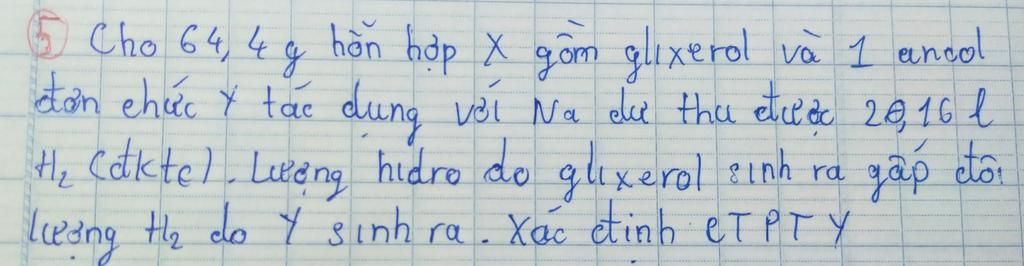 5 Cho 64,4 g hỗn hợp X gồm glixerol và 1 ancol
đơn chức Y tác dụng với Na dư thu được 20,16 l
H₂ (đktc). Lượng hidro do glixerol sinh ra gấp đôi
lượng H₂ do Y sinh ra. Xác định CTPT Y